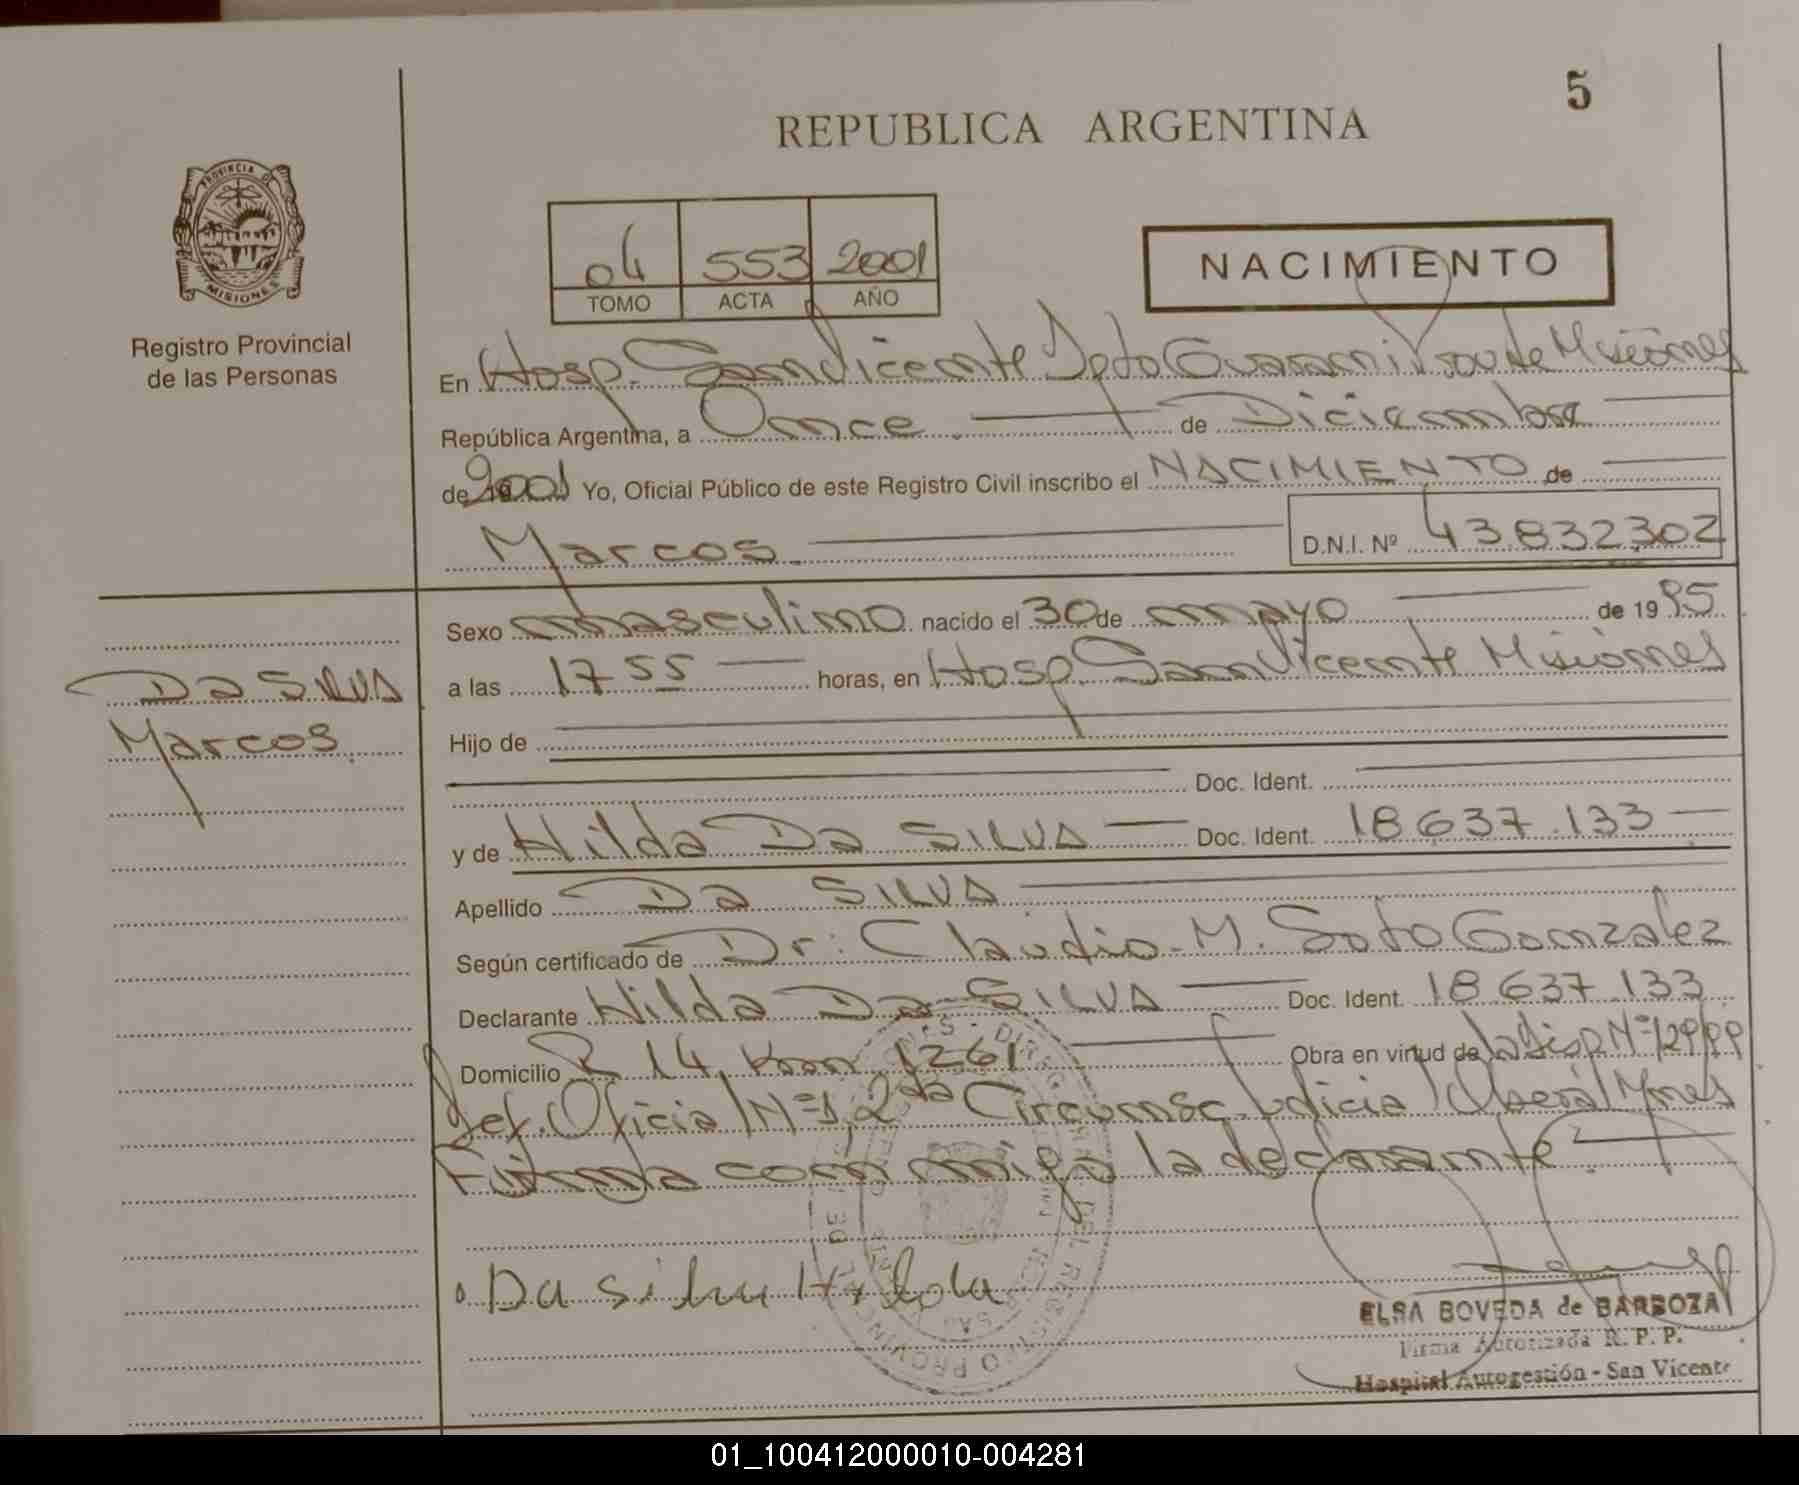 5
REPUBLICA ARGENTINA
PROVINCIA DE
MISIONES
Registro Provincial
de las Personas
04 553 2001
TOMO ACTA AÑO
NACIMIENTO
En Hosp. San Vicente Dpto Guarani Prov de Misiones
República Argentina, a Once de Diciembre
de 2001 Yo, Oficial Público de este Registro Civil inscribo el NACIMIENTO de
Marcos D.N.I. Nº 43832302
Sexo masculino nacido el 30 de mayo de 1995
Da SILVA
Marcos
a las 17 55 horas, en Hosp San Vicente Misiones
Hijo de
Doc. Ident.
y de Hilda Da SILVA Doc. Ident. 18 637.133
Apellido Da SILVA
Según certificado de Dr: Claudio M. Soto Gonzalez
Declarante Hilda Da SILVA Doc. Ident. 18 637 133
Domicilio R 14 Km 1261 Obra en virtud de la Disp Nº 129/99
Def. Oficial Nº 1, 2da Circunsc. Judicial Oberá Mnes
Firma conmigo la declarante
Da silva
ELSA BOVEDA de BARBOZA
Firma Autorizada R. P. P.
Hospital Autogestión - San Vicente
01_100412000010-004281